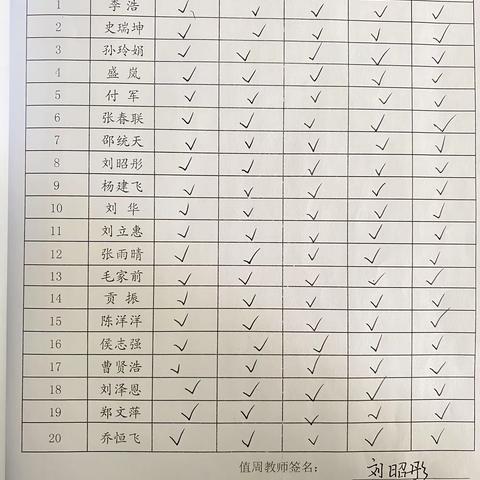 1 李浩 ✓ ✓ ✓ ✓ ✓
2 史瑞坤 ✓ ✓ ✓ ✓ ✓
3 孙玲娟 ✓ ✓ ✓ ✓ ✓
4 盛岚 ✓ ✓ ✓ ✓ ✓
5 付军 ✓ ✓ ✓ ✓ ✓
6 张春联 ✓ ✓ ✓ ✓ ✓
7 邵统天 ✓ ✓ ✓ ✓ ✓
8 刘昭彤 ✓ ✓ ✓ ✓ ✓
9 杨建飞 ✓ ✓ ✓ ✓ ✓
10 刘华 ✓ ✓ ✓ ✓ ✓
11 刘立惠 ✓ ✓ ✓ ✓ ✓
12 张雨晴 ✓ ✓ ✓ ✓ ✓
13 毛家前 ✓ ✓ ✓ ✓ ✓
14 贡振 ✓ ✓ ✓ ✓ ✓
15 陈洋洋 ✓ ✓ ✓ ✓ ✓
16 侯志强 ✓ ✓ ✓ ✓ ✓
17 曹贤浩 ✓ ✓ ✓ ✓ ✓
18 刘泽恩 ✓ ✓ ✓ ✓ ✓
19 郑文萍 ✓ ✓ ✓ ✓ ✓
20 乔恒飞 ✓ ✓ ✓ ✓ ✓
值周教师签名： 刘昭彤